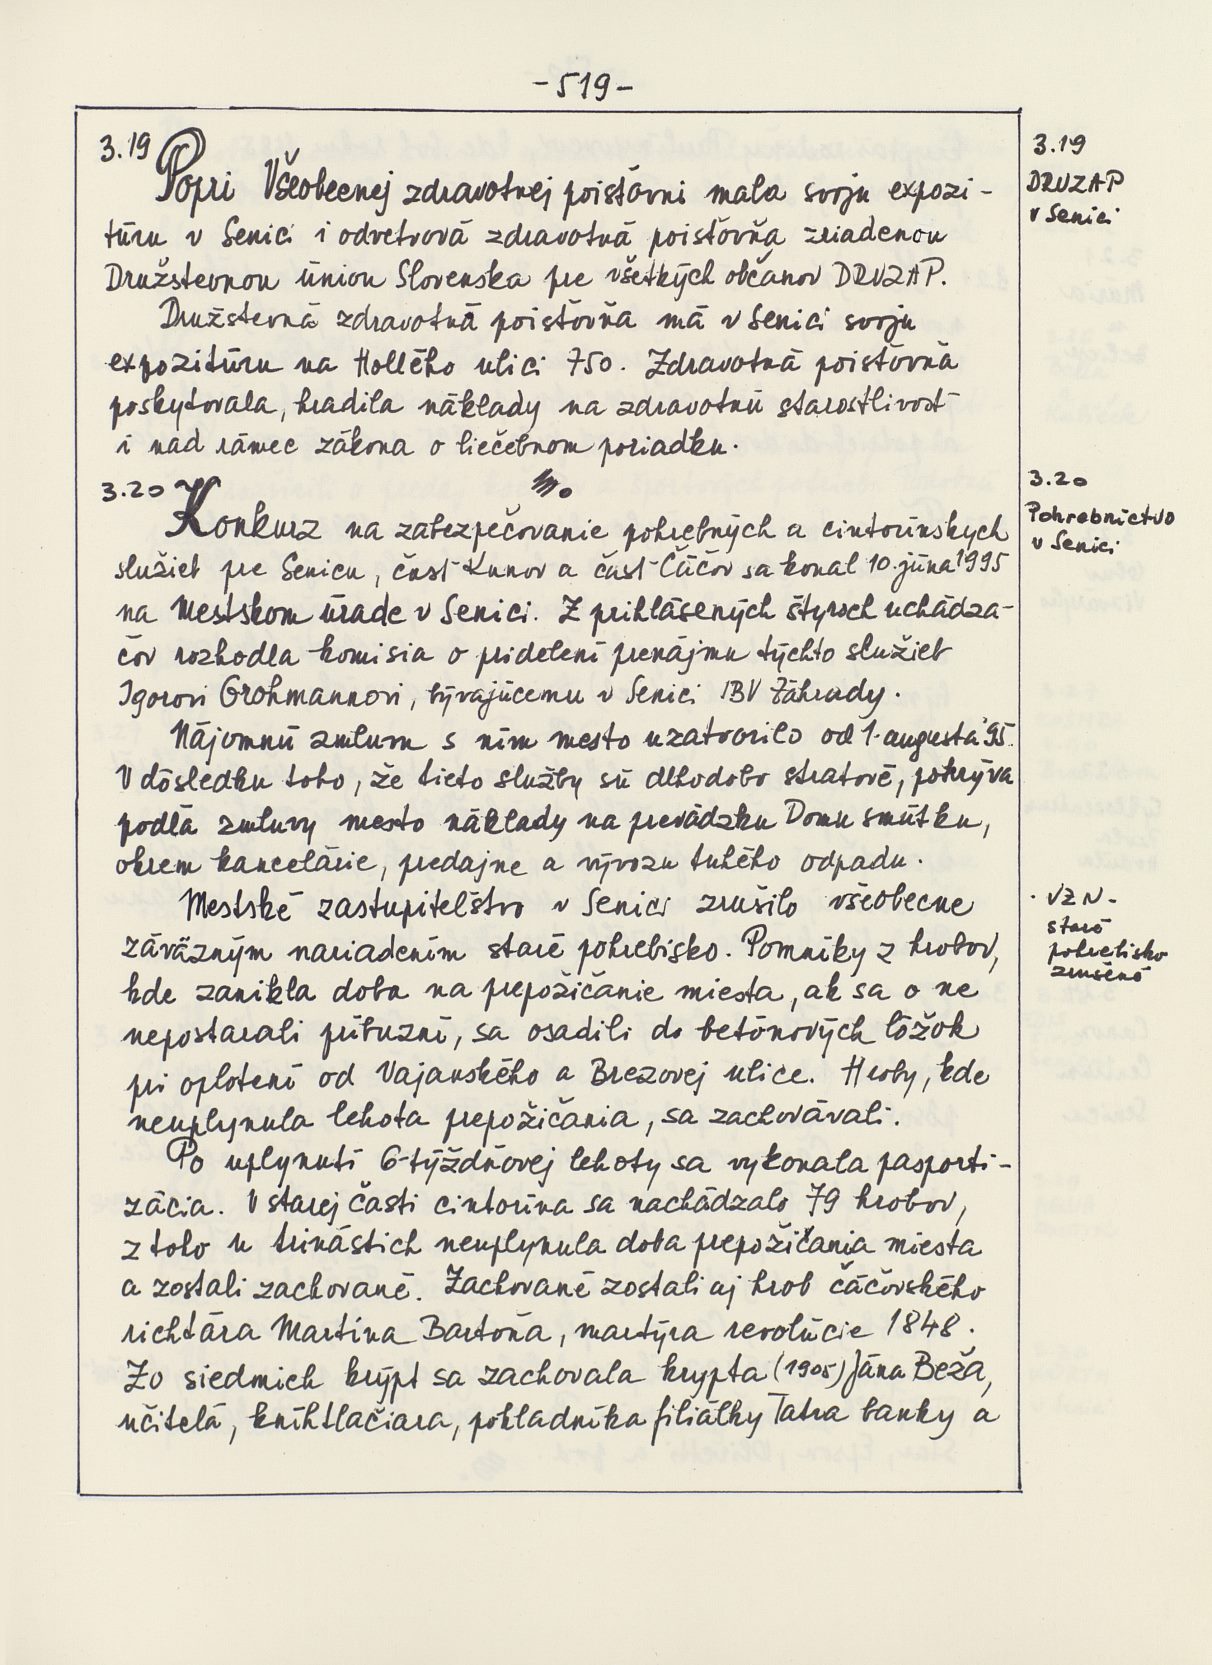 -519-
3.19
Popri Všeobecnej zdravotnej poisťovni mala svoju expozi-
túru v Senici i odvetvová zdravotná poisťovňa zriadenou
Družstevnou úniou Slovenska pre všetkých občanov DRUZAP.
Družstevná zdravotná poisťovňa má v Senici svoju
expozitúru na Hollého ulici 750. Zdravotná poisťovňa
poskytovala, hradila náklady na zdravotnú starostlivosť
i nad rámec zákona o liečebnom poriadku.
3.20
Konkurz na zabezpečovanie pohrebných a cintorínskych
služieb pre Senicu, časť Kunov a časť Čáčov sa konal 10. júna 1995
na Mestskom úrade v Senici. Z prihlásených štyroch uchádza-
čov rozhodla komisia o pridelení prenájmu týchto služieb
Igorovi Grohmannovi, bývajúcemu v Senici IBV Záhrady.
Nájomnú zmluvu s ním mesto uzatvorilo od 1. augusta '95.
V dôsledku toho, že tieto služby sú dlhodobo stratové, pokrýva
podľa zmluvy mesto náklady na prevádzku Domu smútku,
okrem kancelárie, predajne a vývozu tuhého odpadu.
Mestské zastupiteľstvo v Senici zrušilo všeobecne
záväzným nariadením staré pohrebisko. Pomníky z hrobov,
kde zanikla doba na prepožičanie miesta, ak sa o ne
nepostarali príbuzní, sa osadili do betónových lôžok
pri oplotení od Vajanského a Brezovej ulice. Hroby, kde
neuplynula lehota prepožičania, sa zachovávali.
Po uplynutí 6-týždňovej lehoty sa vykonala pasporti-
zácia. V starej časti cintorína sa nachádzalo 79 hrobov,
z toho u trinástich neuplynula doba prepožičania miesta
a zostali zachované. Zachované zostali aj hrob čáčovského
richtára Martina Bartoňa, martýra revolúcie 1848.
Zo siedmich krýpt sa zachovala krypta (1905) Jána Beža,
učiteľa, kníhtlačiara, pokladníka filiálky Tatra banky a
3.19
DRUZAP
v Senici
3.20
Pohrebníctvo
v Senici
· VZN -
staré
pohrebisko
zrušené